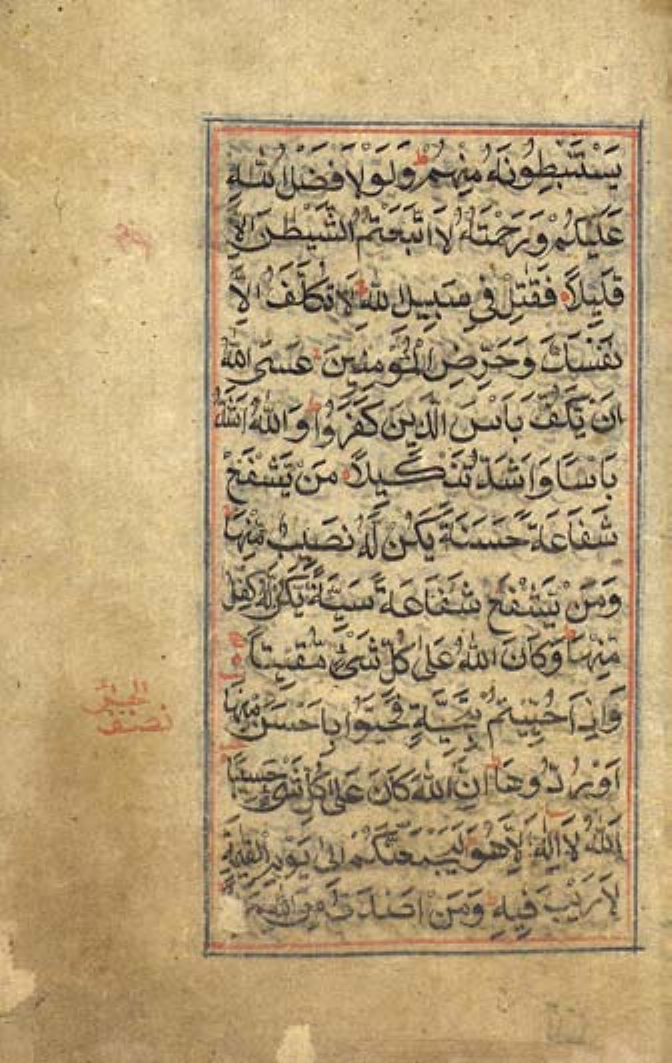 يَسْتَنْبِطُونَهُ مِنْهُمْ ط وَلَوْلَا فَضْلُ اللّٰهِ
عَلَيْكُمْ وَرَحْمَتُهُ لَاتَّبَعْتُمُ الشَّيْطٰنَ اِلَّا
قَلِيْلًا فَقَاتِلْ فِيْ سَبِيْلِ اللّٰهِ لَا تُكَلَّفُ اِلَّا
نَفْسَكَ وَحَرِّضِ الْمُؤْمِنِيْنَ عَسَى اللّٰهُ
اَنْ يَكُفَّ بَاْسَ الَّذِيْنَ كَفَرُوْا ط وَاللّٰهُ اَشَدُّ
بَاْسًا وَاَشَدُّ تَنْكِيْلًا مَنْ يَشْفَعْ
شَفَاعَةً حَسَنَةً يَكُنْ لَهُ نَصِيْبٌ مِنْهَا
وَمَنْ يَشْفَعْ شَفَاعَةً سَيِّئَةً يَكُنْ لَهُ كِفْلٌ
مِنْهَا ط وَكَانَ اللّٰهُ عَلٰى كُلِّ شَيْءٍ مُقِيْتًا
وَاِذَا حُيِّيْتُمْ بِتَحِيَّةٍ فَحَيُّوْا بِاَحْسَنَ مِنْهَا
اَوْ رُدُّوْهَا ط اِنَّ اللّٰهَ كَانَ عَلٰى كُلِّ شَيْءٍ حَسِيْبًا
اَللّٰهُ لَا اِلٰهَ اِلَّا هُوَ لَيَجْمَعَنَّكُمْ اِلٰى يَوْمِ الْقِيٰمَةِ
لَا رَيْبَ فِيْهِ وَمَنْ اَصْدَقُ مِنَ اللّٰهِ
نصف